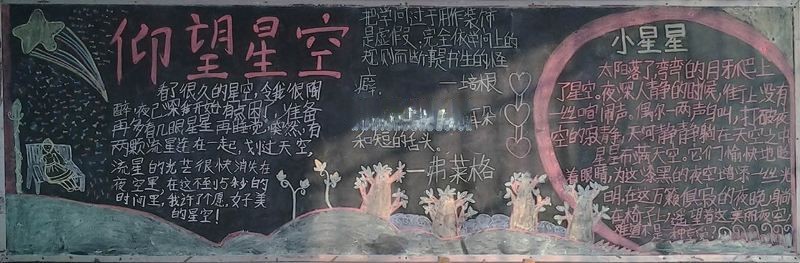 仰望星空
看了很久的星空,令我很陶
醉,夜已深我开始有点困了,准备
再多看几眼星星再睡觉,突然,有
两颗流星连在一起,划过天空,
流星的光芒很快消失在
夜空里,在这不到5秒的
时间里,我许了个愿,好美
的星空!
把学问过于用作装饰
是虚假;完全依学问上的
规则而断事是书生的怪
癖。
——培根
耳朵
和短的舌头。
——弗莱格
小星星
太阳落了,弯弯的月牙爬上
了星空。夜深人静的时候,街上没有
一丝喧闹声。偶尔一两声鸟叫,打破夜
空的寂静。天河静静躺在天空中
星星布满天空。它们愉快地眨
着眼睛,为这漆黑的夜空增添一丝光
明,在这万籁俱寂的夜晚,躺
在椅子上,遥望着这美丽夜空,
难道不是一种享受?